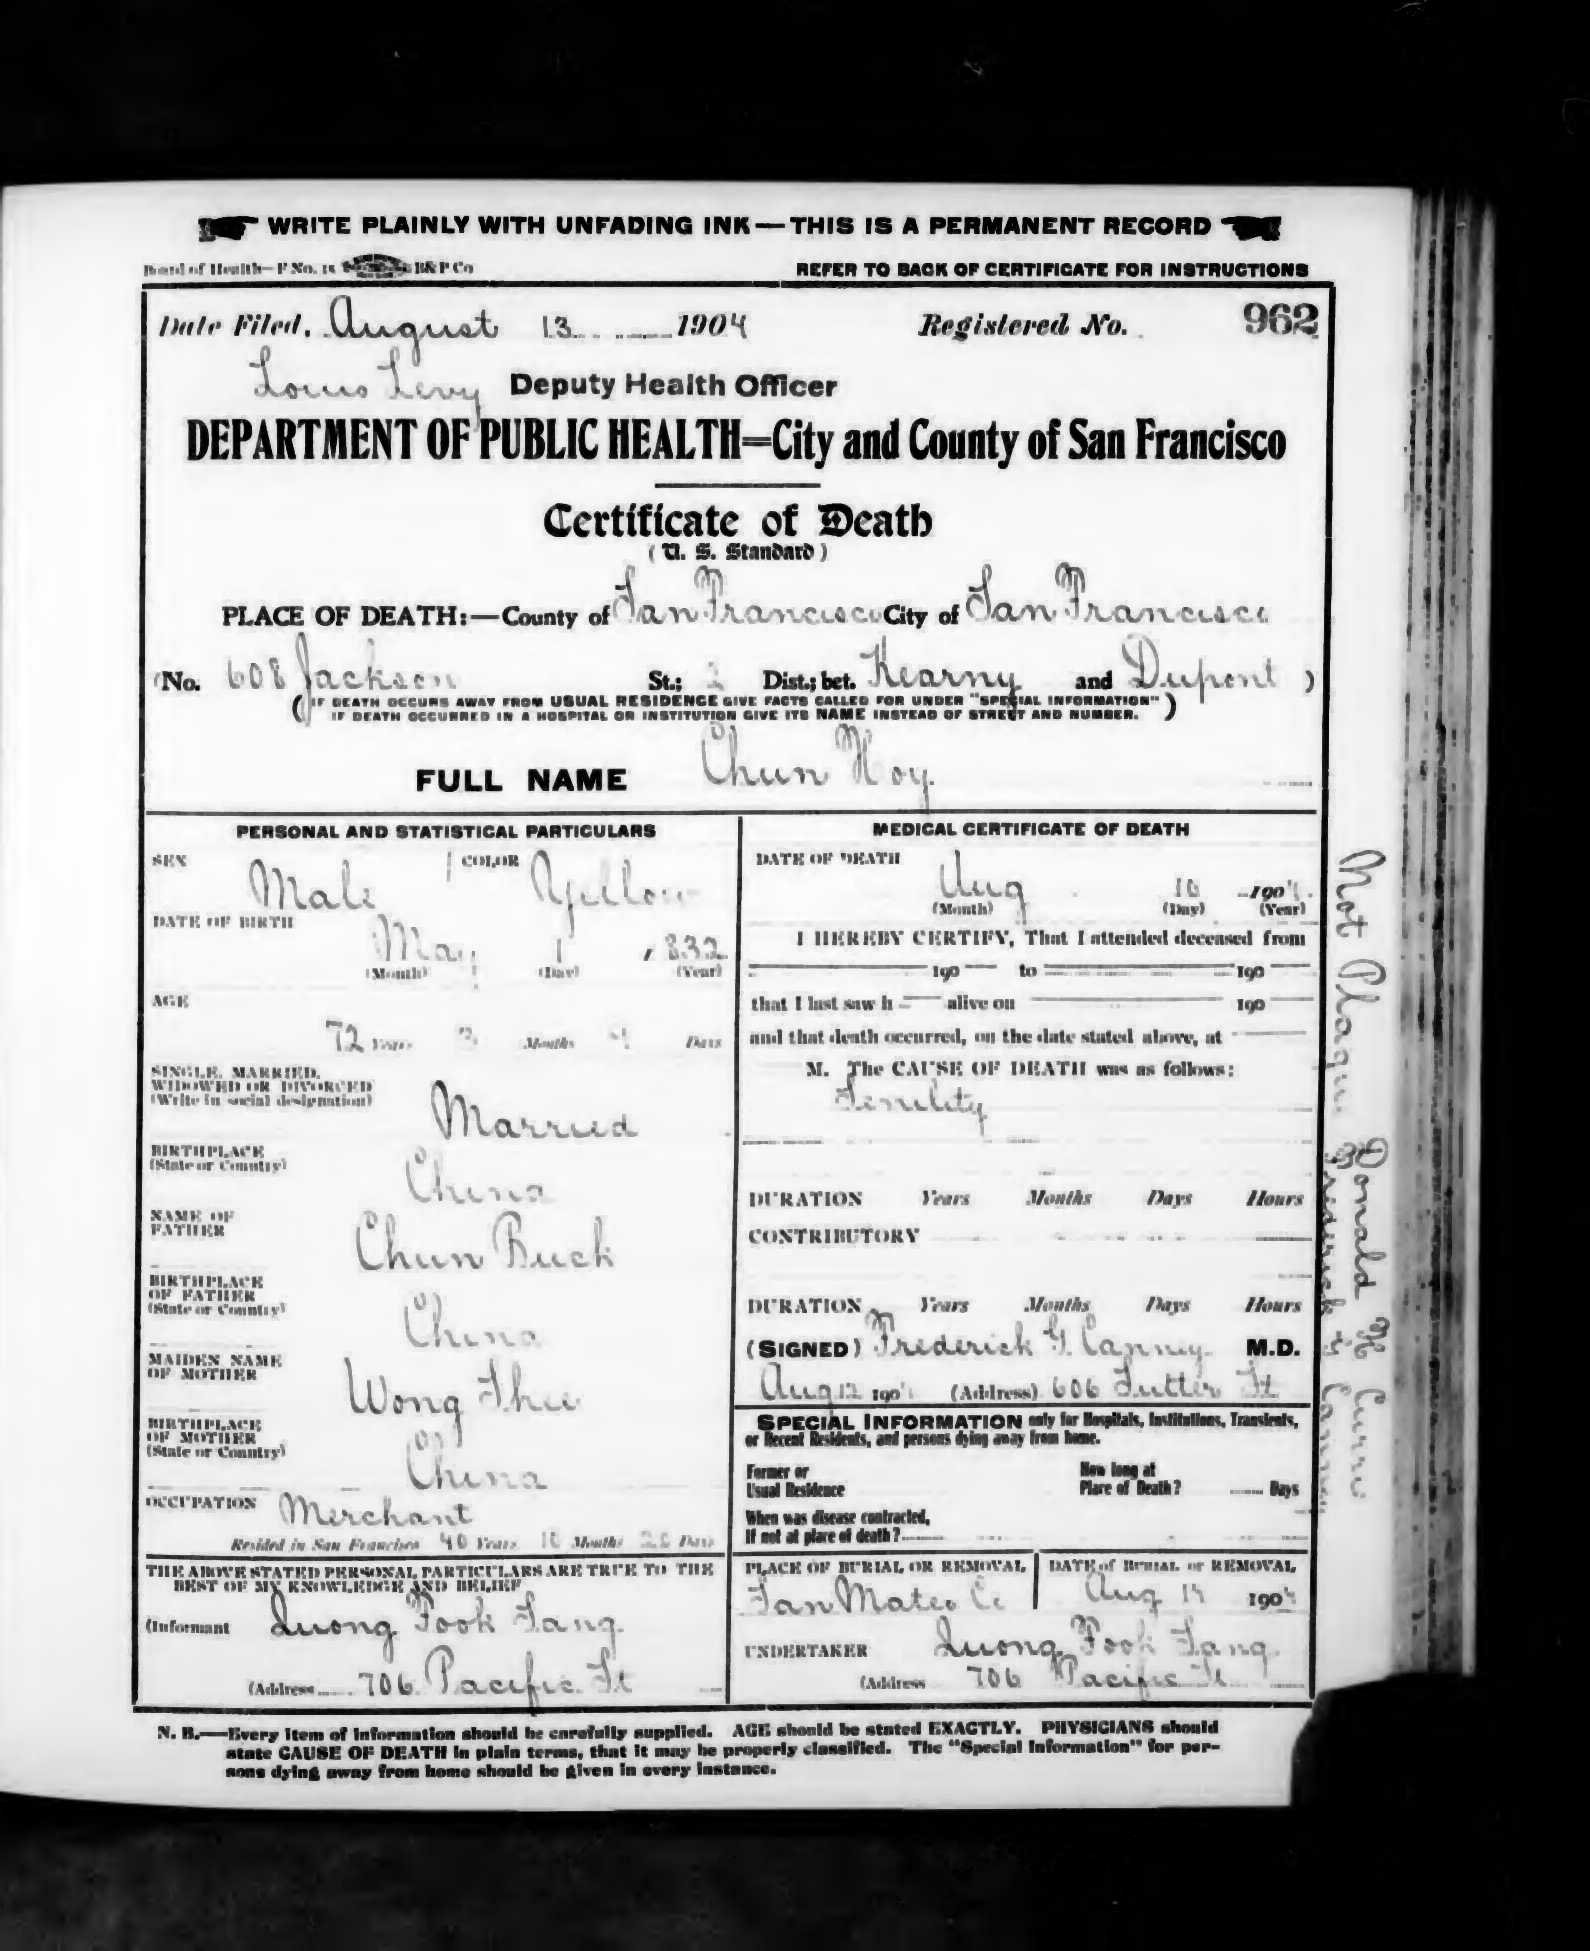 WRITE PLAINLY WITH UNFADING INK—THIS IS A PERMANENT RECORD
Board of Health—F No. 15 B&P Co REFER TO BACK OF CERTIFICATE FOR INSTRUCTIONS
Date Filed, August 13 1904 Registered No. 962
Louis Levy Deputy Health Officer
DEPARTMENT OF PUBLIC HEALTH=City and County of San Francisco
Certificate of Death
(U. S. Standard)
PLACE OF DEATH:—County of San Francisco City of San Francisco
(No. 608 Jackson St.; 2 Dist.; bet. Kearny and Dupont )
(IF DEATH OCCURS AWAY FROM USUAL RESIDENCE GIVE FACTS CALLED FOR UNDER "SPECIAL INFORMATION"
IF DEATH OCCURRED IN A HOSPITAL OR INSTITUTION GIVE ITS NAME INSTEAD OF STREET AND NUMBER.)
FULL NAME Chun Hoy
PERSONAL AND STATISTICAL PARTICULARS
SEX Male COLOR Yellow
DATE OF BIRTH
May 1 1832
(Month) (Day) (Year)
AGE
72 Years 3 Months 9 Days
SINGLE, MARRIED,
WIDOWED OR DIVORCED
(Write in social designation)
Married
BIRTHPLACE
(State or Country)
China
NAME OF
FATHER
Chun Buck
BIRTHPLACE
OF FATHER
(State or Country)
China
MAIDEN NAME
OF MOTHER
Wong Shee
BIRTHPLACE
OF MOTHER
(State or Country)
China
OCCUPATION Merchant
Resided in San Francisco 40 Years 10 Months Days
THE ABOVE STATED PERSONAL PARTICULARS ARE TRUE TO THE
BEST OF MY KNOWLEDGE AND BELIEF
(Informant Quong Fook Sang
(Address 706 Pacific St
MEDICAL CERTIFICATE OF DEATH
DATE OF DEATH
Aug 10 1904
(Month) (Day) (Year)
I HEREBY CERTIFY, That I attended deceased from
190 to 190
that I last saw h alive on 190
and that death occurred, on the date stated above, at
M. The CAUSE OF DEATH was as follows:
Senility
DURATION Years Months Days Hours
CONTRIBUTORY
DURATION Years Months Days Hours
(SIGNED) Frederick G. Canney M.D.
Aug 12 1904 (Address) 606 Sutter St
SPECIAL INFORMATION only for Hospitals, Institutions, Transients,
or Recent Residents, and persons dying away from home.
Former or
Usual Residence
How long at
Place of Death? Days
When was disease contracted,
If not at place of death?
PLACE OF BURIAL OR REMOVAL
San Mateo Co
DATE of BURIAL or REMOVAL
Aug 14 1904
UNDERTAKER Quong Fook Sang
(Address 706 Pacific St
N. B.—Every item of information should be carefully supplied. AGE should be stated EXACTLY. PHYSICIANS should
state CAUSE OF DEATH in plain terms, that it may be properly classified. The "Special Information" for per-
sons dying away from home should be given in every instance.
Not Plague Donald H Currie
Frederick G Canney